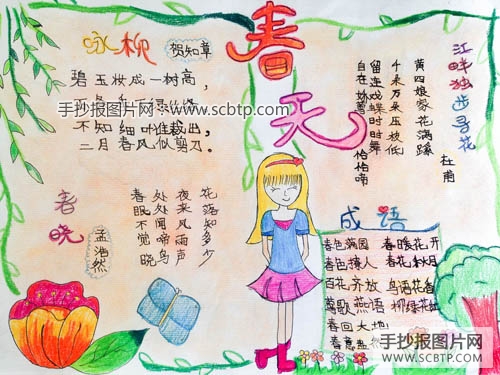 春天
咏柳
贺知章
碧玉妆成一树高,
手抄报图片网:www.scbtp.com
不知细叶谁裁出,
二月春风似剪刀.
江畔独步寻花
杜甫
黄四娘家花满蹊
千朵万朵压枝低
留连戏蝶时时舞
自在娇莺恰恰啼
春晓
孟浩然
春眠不觉晓
处处闻啼鸟
夜来风雨声
花落知多少
成语
春色满园 春暖花开
春色撩人 春花秋月
百花齐放 鸟语花香
莺歌燕语 柳绿花红
春回大地
春意盎然
手抄报图片网
WWW.SCBTP.COM